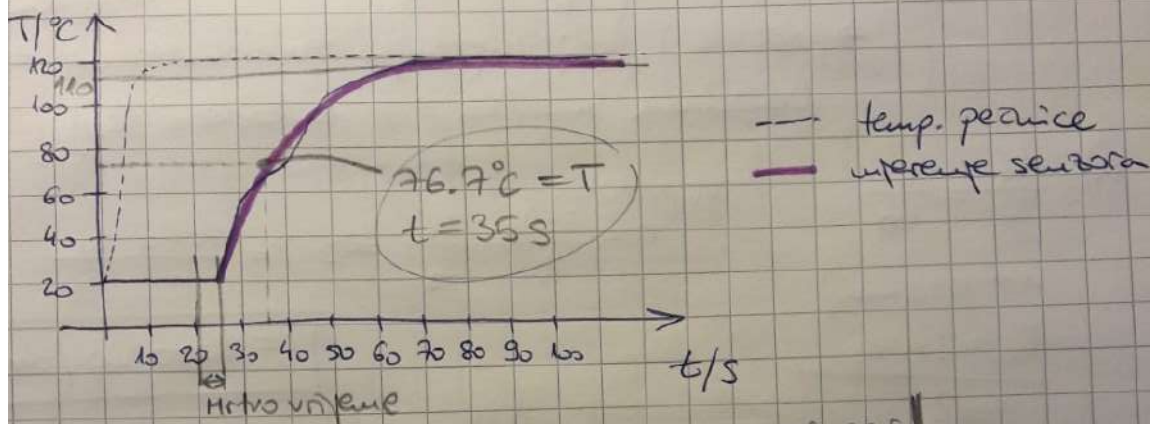 T/°C
120
110
100
80
60
40
20
10 20 30 40 50 60 70 80 90 100
t/s
Mrtvo vrijeme
76.7°C = T
t = 35 s
--- temp. pećnice
mjerenje senzora